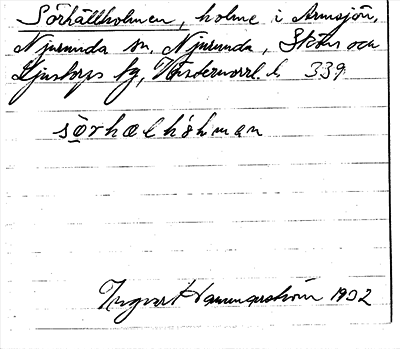 Sörhällholmen, holme i Armsjön,
Njurunda sn, Njurunda, Sköns och
Ljustorps tg, Västernorrl. l. 339
sörhælhòḷman
Ingvar Hammarström 1932